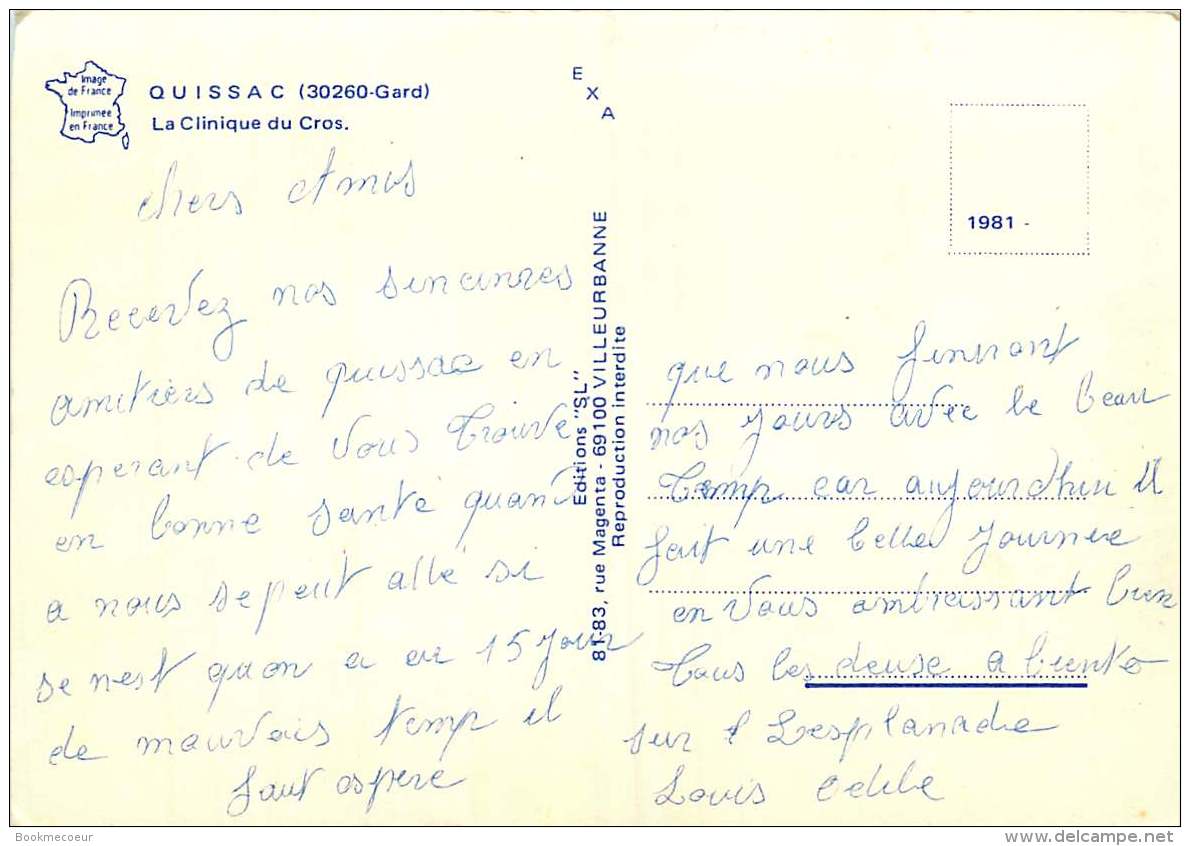 Image
de France
Imprimée
en France
QUISSAC (30260-Gard)
La Clinique du Cros.
chers Amis
Recevez nos sincinres
amitiers de quissac en
esperant de vous trouve
en bonne santé quand
a nous se peut allé si
se nest quon a eu 15 jour
de mauvais temp il
faut espere
E
X
A
Editions "SL"
81-83, rue Magenta - 69100 VILLEURBANNE
Reproduction interdite
1981 -
que nous finiront
nos jours avec le beau
temp car aujourdhui il
fait une belle journee
en vous ambrassant bien
tous les deuse a bientô
sur l Lesplanade
Louis
Bookmecoeur
www.delcampe.net